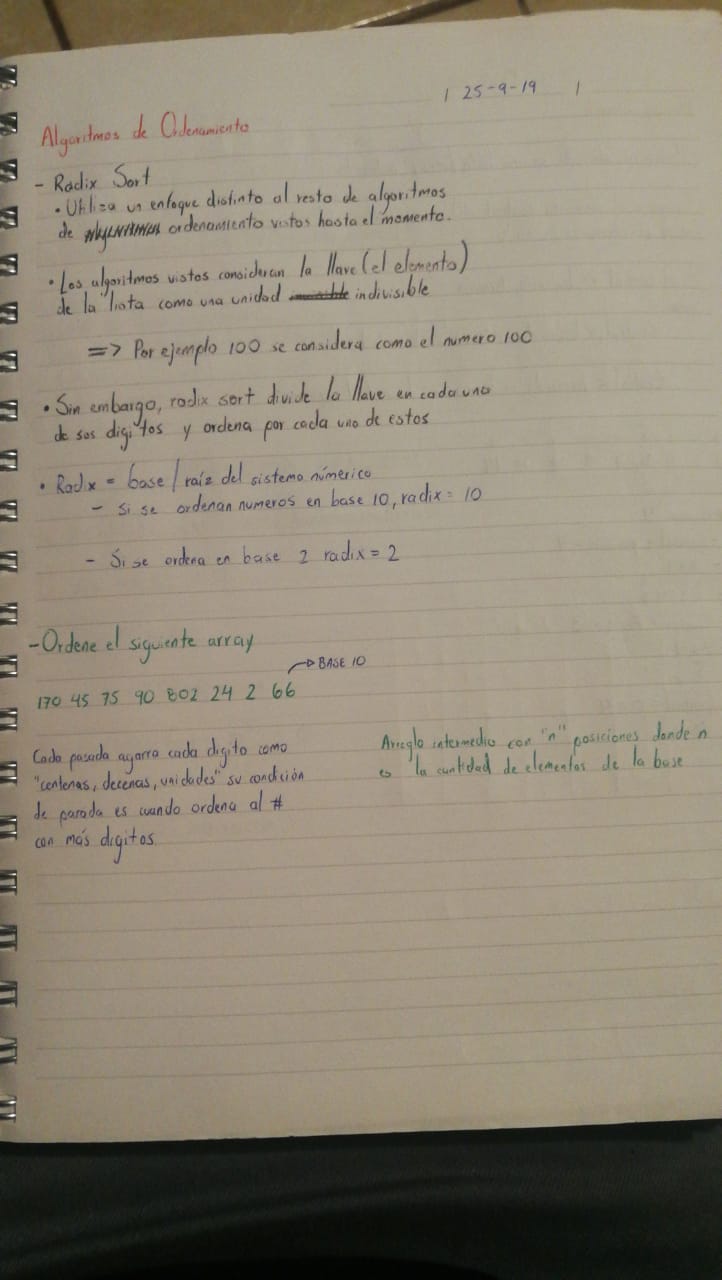 | 25-9-19 |
Algoritmos de Ordenamiento
- Radix Sort
• Utiliza un enfoque distinto al resto de algoritmos
de ordenamiento vistos hasta el momento.
• Los algoritmos vistos consideran la llave (el elemento)
de la lista como una unidad indivisible
=> Por ejemplo 100 se considera como el numero 100
• Sin embargo, radix sort divide la llave en cada uno
de sus digitos y ordena por cada uno de estos
• Radix = base / raíz del sistema númerico
- Si se ordenan numeros en base 10, radix = 10
- Si se ordena en base 2 radix = 2
- Ordene el siguiente array
→ BASE 10
170 45 75 90 802 24 2 66
Cada pasada agarra cada digito como
"centenas, decenas, unidades" su condición
de parada es cuando ordena al #
con más digitos.
Arreglo intermedio con "n" posiciones donde n
es la cantidad de elementos de la base